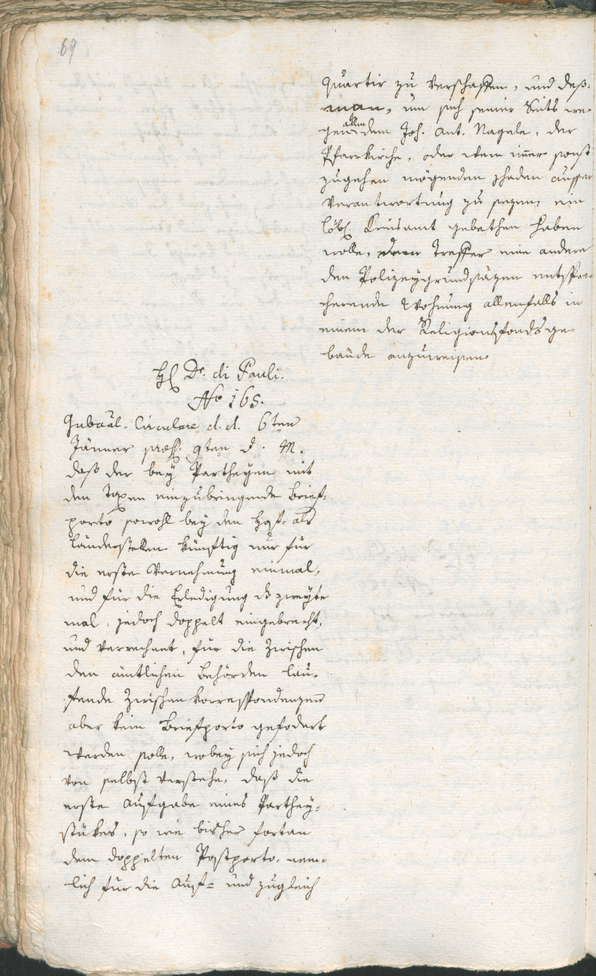 69
quartir zu verschaffen, und deß-
man, um sich seiner Seits we-
gen allen dem Joh. Ant. Nagele, der
Pfarrkirche, oder wem immer sonst
zugehen mögenden schaden ausser
Verantwortung zu sezen, ein
löbl. Kreisamt gebethen haben
wolle, dem Treffer eine andere
den Polizeygrundsäzen entspre-
chende Wohnung allenfalls in
einem der Religionsfondsge-
bäude anzuweisen.
H. Dr. di Pauli.
No 165.
Gubaäl. Circulare d. d. 6ten
Jänner præs. 9ten d. M.
daß der bey Partheyen mit
den Taxen einzubringende Brief-
porto sowohl bey den Hof- als
Länderstellen künftig nur für
die erste Vernehmung einmal,
und für die Erledigung das zweyte
mal, jedoch doppelt eingebracht,
und verrechnet, für die Zwischen
den ämtlichen Behörden lau-
fende Zwischenkorrespondenzen
aber kein Briefporto gefodert
werden solle, wobey sich jedoch
von selbst verstehe, daß die
erste Aufgabe eines Parthey-
stükes, so wie bisher fortan
dem doppelten Postporto, nem-
lich für die Auf- und zugleich